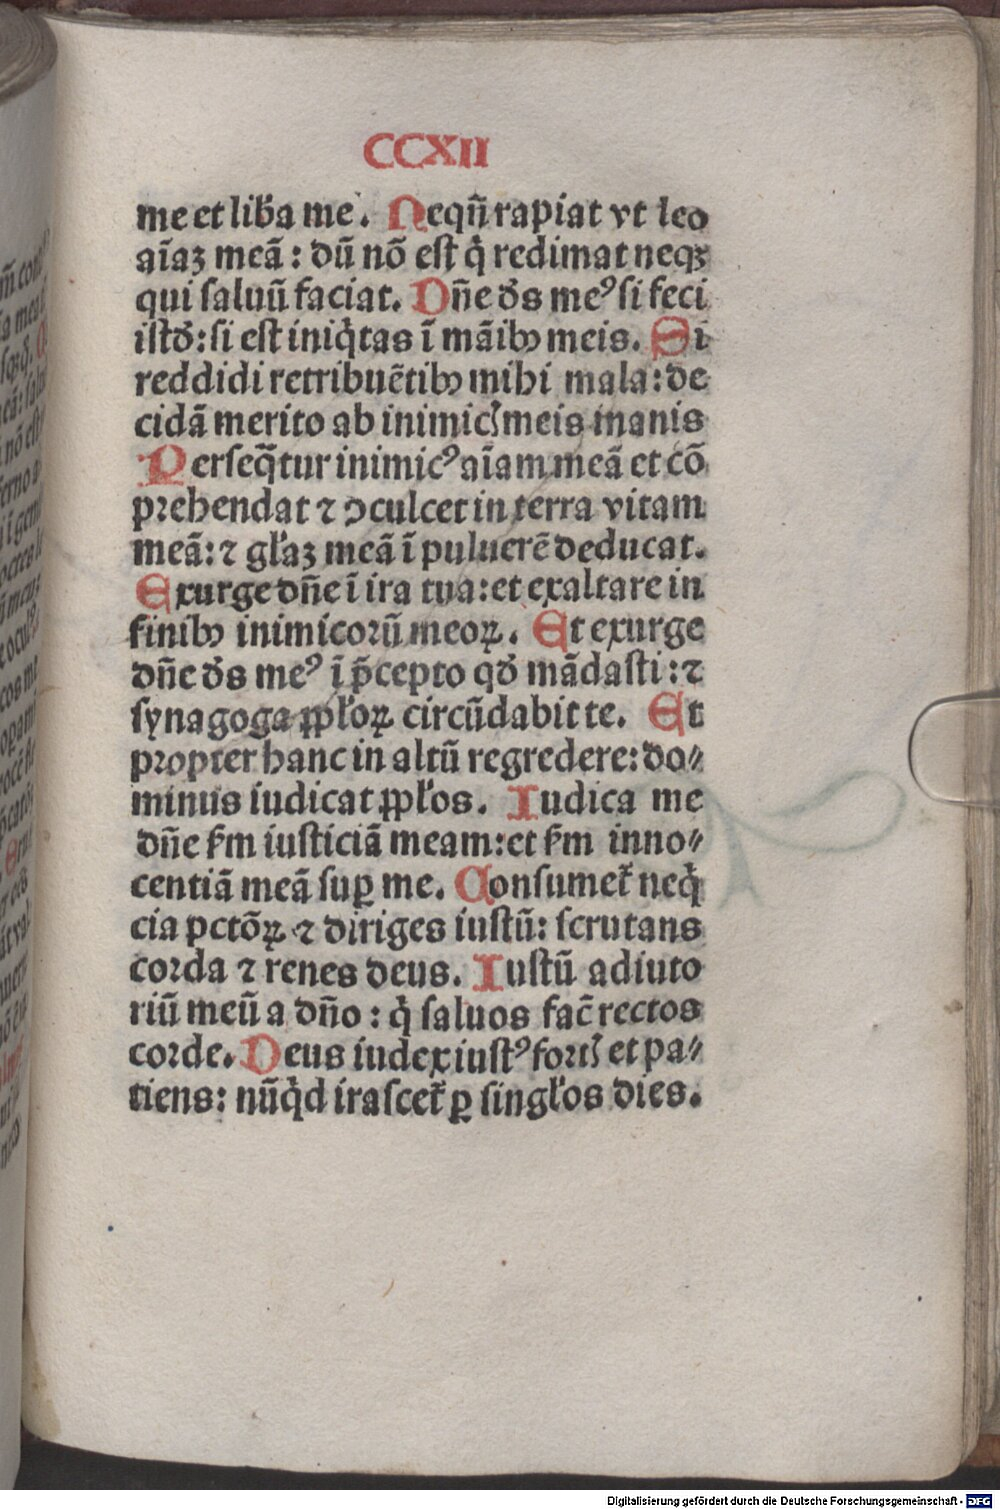 CCXII
me et lib̃a me. Neqñ rapiat vt leo
aĩaꝫ meã: dũ nõ est q̇ redimat neqꝫ
qui saluũ faciat. Dñe de᷒s meꝰ si feci
istđ: si est iniq̇tas ĩ mãibꝰ meis. Si
reddidi retribuẽtibꝰ mihi mala: de
cidã merito ab inimicꝭ meis inanis
Perseq̃tur inimicꝰ aĩam meã et cõ
prehendat ⁊ ꝯculcet in terra vitam
meã: ⁊ gl̃aꝫ meã ĩ puluerẽ deducat.
Exurge dñe ĩ ira tua: et exaltare in
finibꝰ inimicoꝛũ meoꝝ. Et exurge
dñe đs meꝰ ĩ p̃cepto qđ mãdasti: ⁊
synagoga ꝓpl̓oꝝ circũdabit te. Et
propter hanc in altũ regredere: do⸗
minus iudicat ꝓpl̓os. Iudica me
dñe ẜm iusticiã meam: et ẜm inno⸗
centiã meã suꝑ me. Consumet᷑ neq̇
cia pctõꝝ ⁊ diriges iustũ: scrutans
corda ⁊ renes deus. Iustũ adiuto
riũ meũ a dño: q̇ saluos fac̃ rectos
corde. Deus iudex iustꝰ fortꝭ et pa⸗
tiens: nũq̇d irascet᷑ ꝑ singl̓os dies.
Digitalisierung gefördert durch die Deutsche Forschungsgemeinschaft - DFG